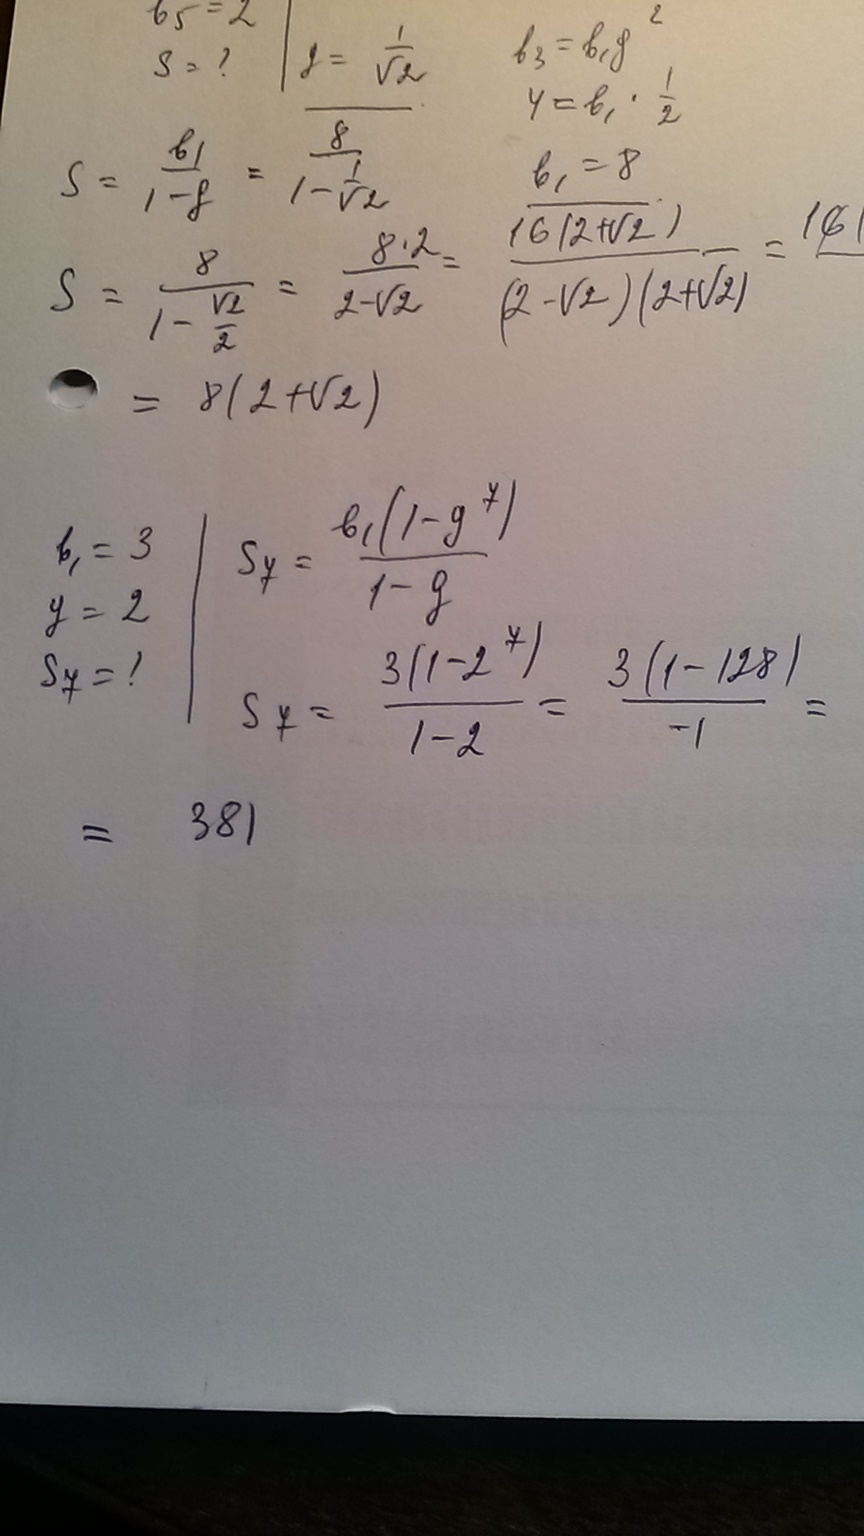 b₅ = 2
S = ? | q = 1/√2
b₃ = b₁q²
4 = b₁ · 1/2
b₁ = 8
S = b₁/(1-q) = 8/(1-1/√2)
S = 8/(1-√2/2) = 8·2/(2-√2) = 16(2+√2)/((2-√2)(2+√2)) = 16(
= 8(2+√2)
b₁ = 3
q = 2
S₇ = ?
S₇ = b₁(1-q⁷)/(1-q)
S₇ = 3(1-2⁷)/(1-2) = 3(1-128)/-1 =
= 381